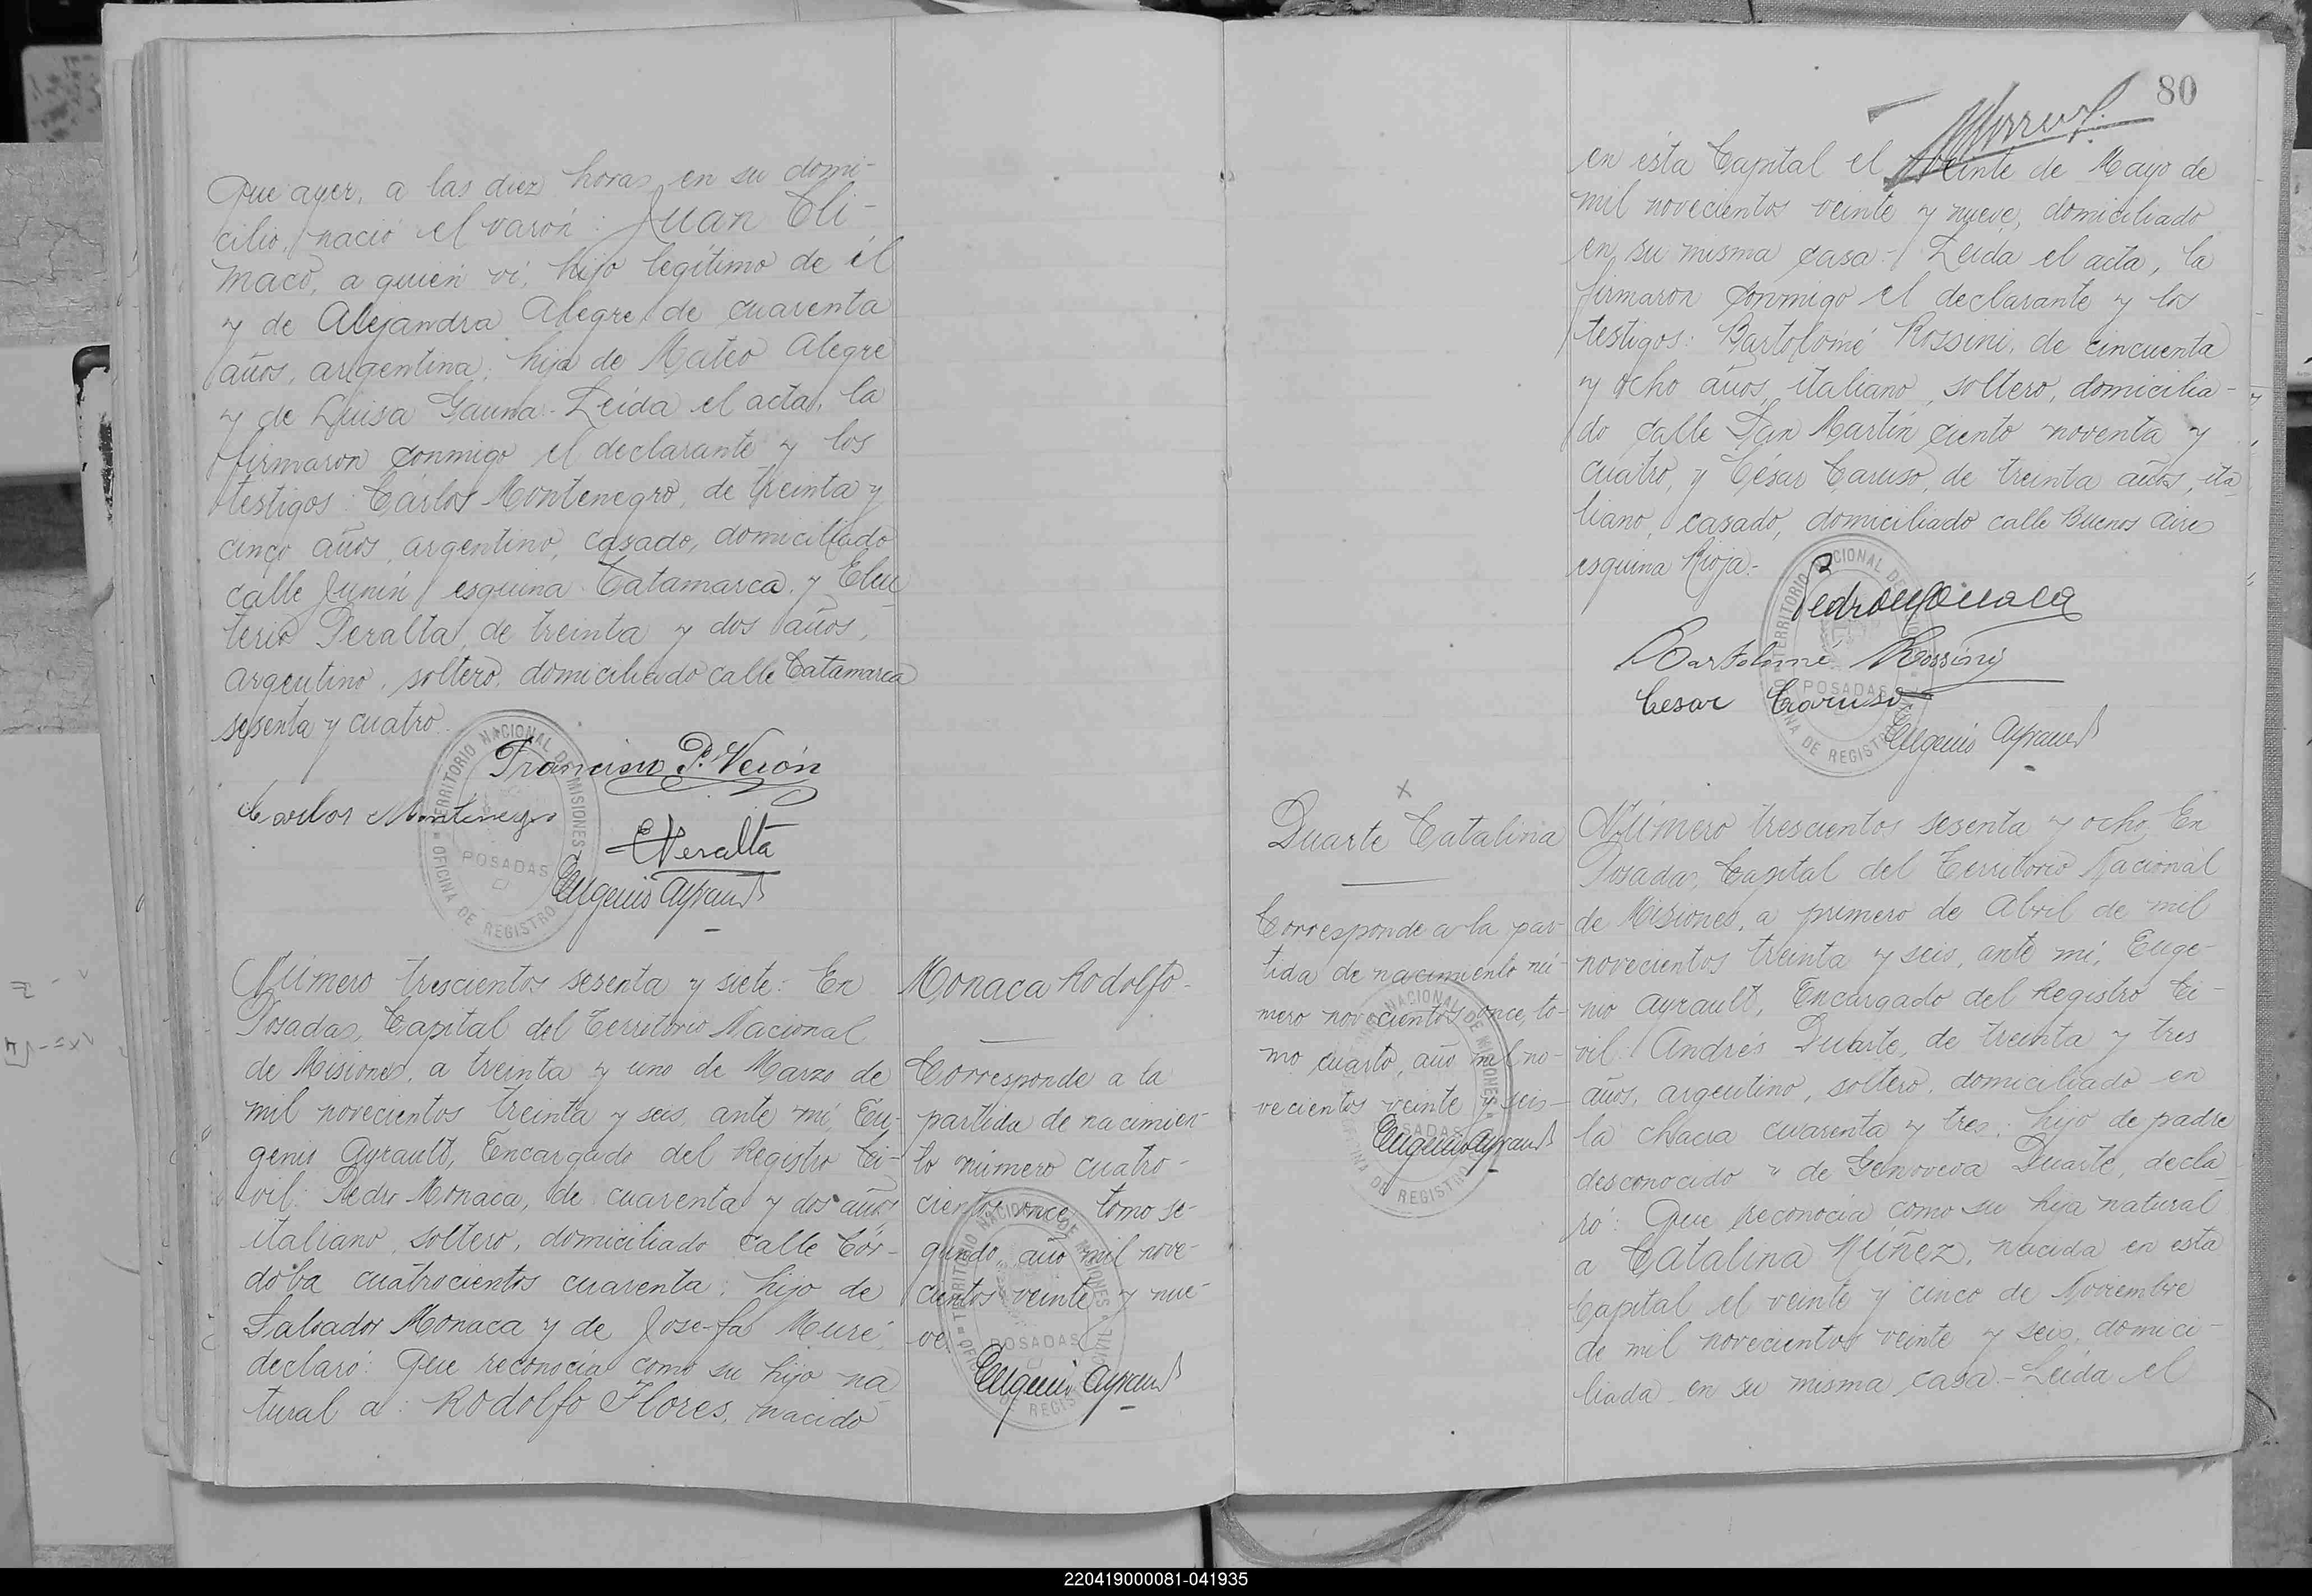 Que ayer, a las diez horas en su domi-
cilio, nació el varón: Juan Clí-
maco, a quien vi, hijo legítimo de él
y de Alejandra Alegre de cuarenta
años, argentina; hija de Mateo Alegre
y de Luisa Gauna - Leida el acta, la
firmaron conmigo el declarante y los
testigos: Cárlos Montenegro, de treinta y
cinco años, argentino, casado, domiciliado
calle Junín esquina Catamarca, y Eleu
terio Peralta, de treinta y dos años,
argentino, soltero, domiciliado calle Catamarca
sesenta y cuatro.
Francisco P. Verón
Carlos Montenegro
E Peralta
Eugenio Ayrault
TERRITORIO NACIONAL DE MISIONES
POSADAS
OFICINA DE REGISTRO
Número trescientos sesenta y siete: En
Posadas, Capital del Territorio Nacional
de Misiones, a treinta y uno de Marzo de
mil novecientos treinta y seis, ante mí, Eu-
genio Ayrault, Encargado del Registro Ci-
vil: Pedro Monaca, de cuarenta y dos años
italiano, soltero, domiciliado calle Cór-
doba cuatrocientos cuarenta; hijo de
Salvador Monaca y de Josefa Muré,
declaró: Que reconocía como su hijo na
tural a: Rodolfo Flores, nacido
Monaca Rodolfo-
Corresponde a la
partida de nacimien-
to número cuatro-
cientos once, tomo se-
gundo, año mil nove-
cientos veinte y nue-
ve
Eugenio Ayrault
80
en ésta Capital el veinte de Mayo de
mil novecientos veinte y nueve, domiciliado
en su misma casa.- Leida el acta, la
firmaron conmigo el declarante y los
testigos: Bartolomé Rossini, de cincuenta
y ocho años, italiano, soltero, domicilia-
do calle San Martín ciento noventa y
cuatro, y César Caruso, de treinta años, ita
liano, casado, domiciliado calle Buenos Aires
esquina Rioja.-
Pedro Monaca
Bartolomé Rossini
Cesar Caruso
Eugenio Ayrault
TERRITORIO NACIONAL DE MISIONES
POSADAS
OFICINA DE REGISTRO
Duarte Catalina
Corresponde a la par-
tida de nacimiento nú-
mero novecientos once, to-
mo cuarto, año mil no-
vecientos veinte y seis-
Eugenio Ayrault
Número trescientos sesenta y ocho. En
Posadas, Capital del Territorio Nacional
de Misiones, a primero de Abril de mil
novecientos treinta y seis, ante mí, Euge-
nio Ayrault, Encargado del Registro Ci-
vil: Andrés Duarte, de treinta y tres
años, argentino, soltero, domiciliado en
la chacra cuarenta y tres; hijo de padre
desconocido y de Genoveva Duarte, decla
ró: Que reconocía como su hija natural
a Catalina Núñez, nacida en esta
Capital el veinte y cinco de Noviembre
de mil novecientos veinte y seis, domici-
liada en su misma casa.- Leida el
220419000081-041935